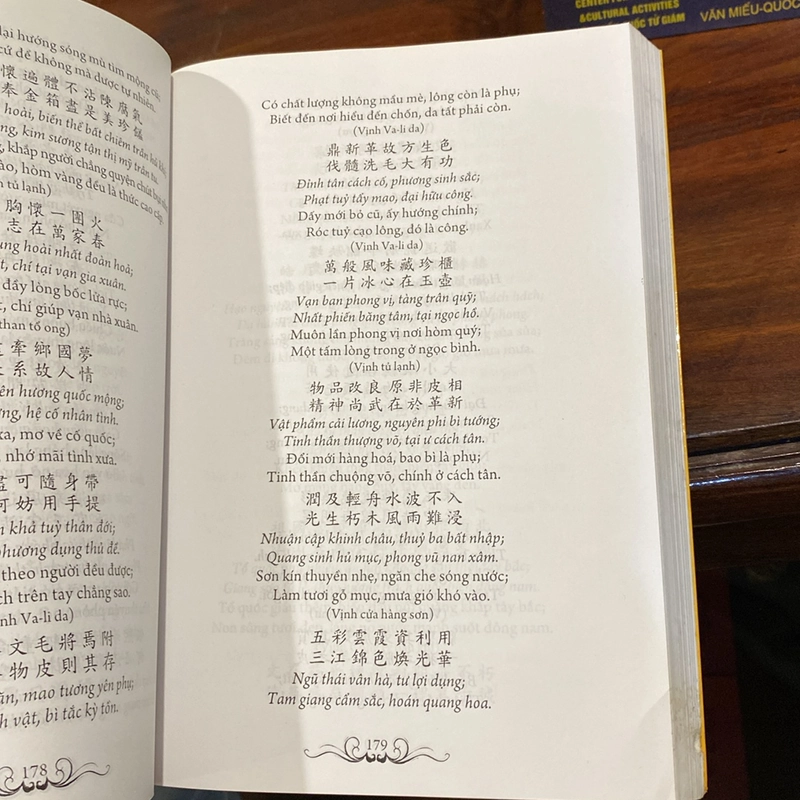 CENTER FOR
&CULTURAL ACTIVITIES
QUỐC TỬ GIÁM
VĂN MIẾU-QUỐC
hướng sóng mù tìm mộng cũ;
cứ để không mà được tự nhiên.
懷遍體不沾陳腐氣
奉金箱盡是美珍饈
hoài, biến thể bất chiêm trần hủ khí;
kim sương tận thị mỹ trân tu.
khắp người chẳng quyện chút bụi trần;
hòm vàng đều là thức cao cấp.
tủ lạnh)
胸懷一團火
志在萬家春
hoài nhất đoàn hoả;
chí tại vạn gia xuân.
đầy lòng bốc lửa rực;
chí giúp vạn nhà xuân.
than tổ ong)
牽鄉國夢
系故人情
hương quốc mộng;
hệ cố nhân tình.
xa, mơ về cố quốc;
nhớ mãi tình xưa.
盡可隨身帶
何妨用手提
khả tuỳ thân đới;
phương dụng thủ đề.
theo người đều được;
trên tay chẳng sao.
Vịnh Va-li da)
文毛將焉附
物皮則其存
mao tương yên phụ;
vật, bì tắc kỳ tồn.
178
Có chất lượng không mẩu mè, lông còn là phụ;
Biết đến nơi hiểu đến chốn, da tất phải còn.
(Vịnh Va-li da)
鼎新革故方生色
伐髓洗毛大有功
Đỉnh tân cách cố, phương sinh sắc;
Phạt tuỷ tẩy mao, đại hữu công.
Dấy mới bỏ cũ, ấy hưởng chính;
Róc tuỷ cạo lông, đó là công.
(Vịnh Va-li da)
萬般風味藏珍櫃
一片冰心在玉壺
Vạn ban phong vị, tàng trân quỹ;
Nhất phiến băng tâm, tại ngọc hồ.
Muôn lần phong vị nơi hòm quý;
Một tấm lòng trong ở ngọc bình.
(Vịnh tủ lạnh)
物品改良原非皮相
精神尚武在於革新
Vật phẩm cải lương, nguyên phi bì tướng;
Tinh thần thượng võ, tại ư cách tân.
Đổi mới hàng hoá, bao bì là phụ;
Tinh thần chuộng võ, chính ở cách tân.
潤及輕舟水波不入
光生朽木風雨難浸
Nhuận cập khinh châu, thuỷ ba bất nhập;
Quang sinh hủ mục, phong vũ nan xâm.
Sơn kín thuyền nhẹ, ngăn che sóng nước;
Làm tươi gỗ mục, mưa gió khó vào.
(Vịnh cửa hàng sơn)
五彩雲霞資利用
三江錦色煥光華
Ngũ thái vân hà, tư lợi dụng;
Tam giang cẩm sắc, hoán quang hoa.
179